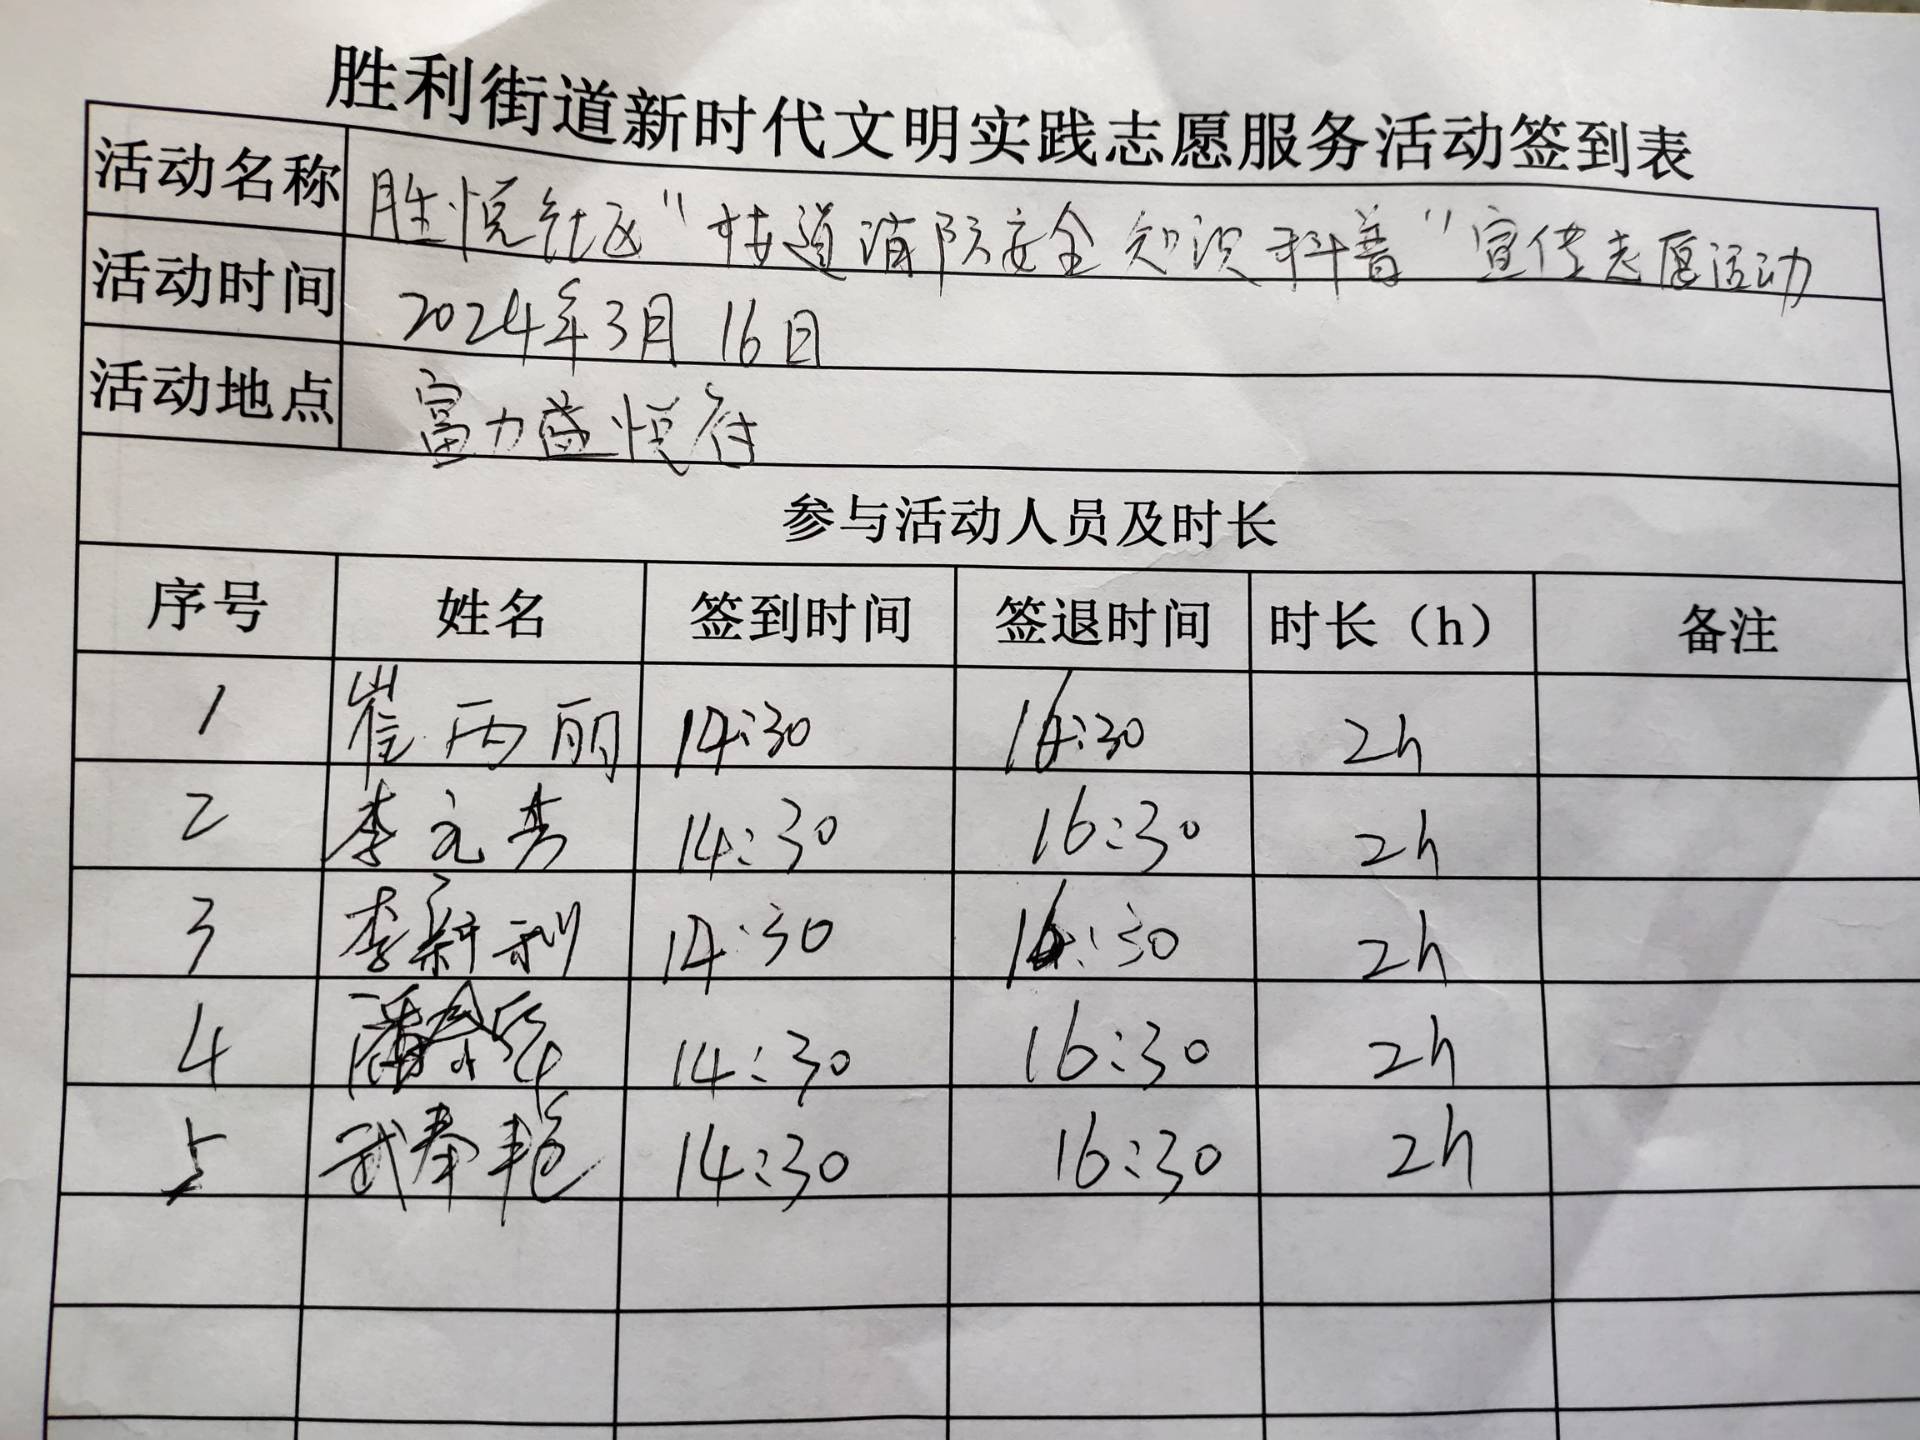 胜利街道新时代文明实践志愿服务活动签到表
活动名称 胜悦社区“楼道消防安全知识科普”宣传志愿活动
活动时间 2024年3月16日
活动地点 富力盛悦府
参与活动人员及时长
序号 姓名 签到时间 签退时间 时长（h） 备注
1 崔丙丽 14:30 16:30 2h
2 李元秀 14:30 16:30 2h
3 李新利 14:30 16:30 2h
4 14:30 16:30 2h
5 武春艳 14:30 16:30 2h